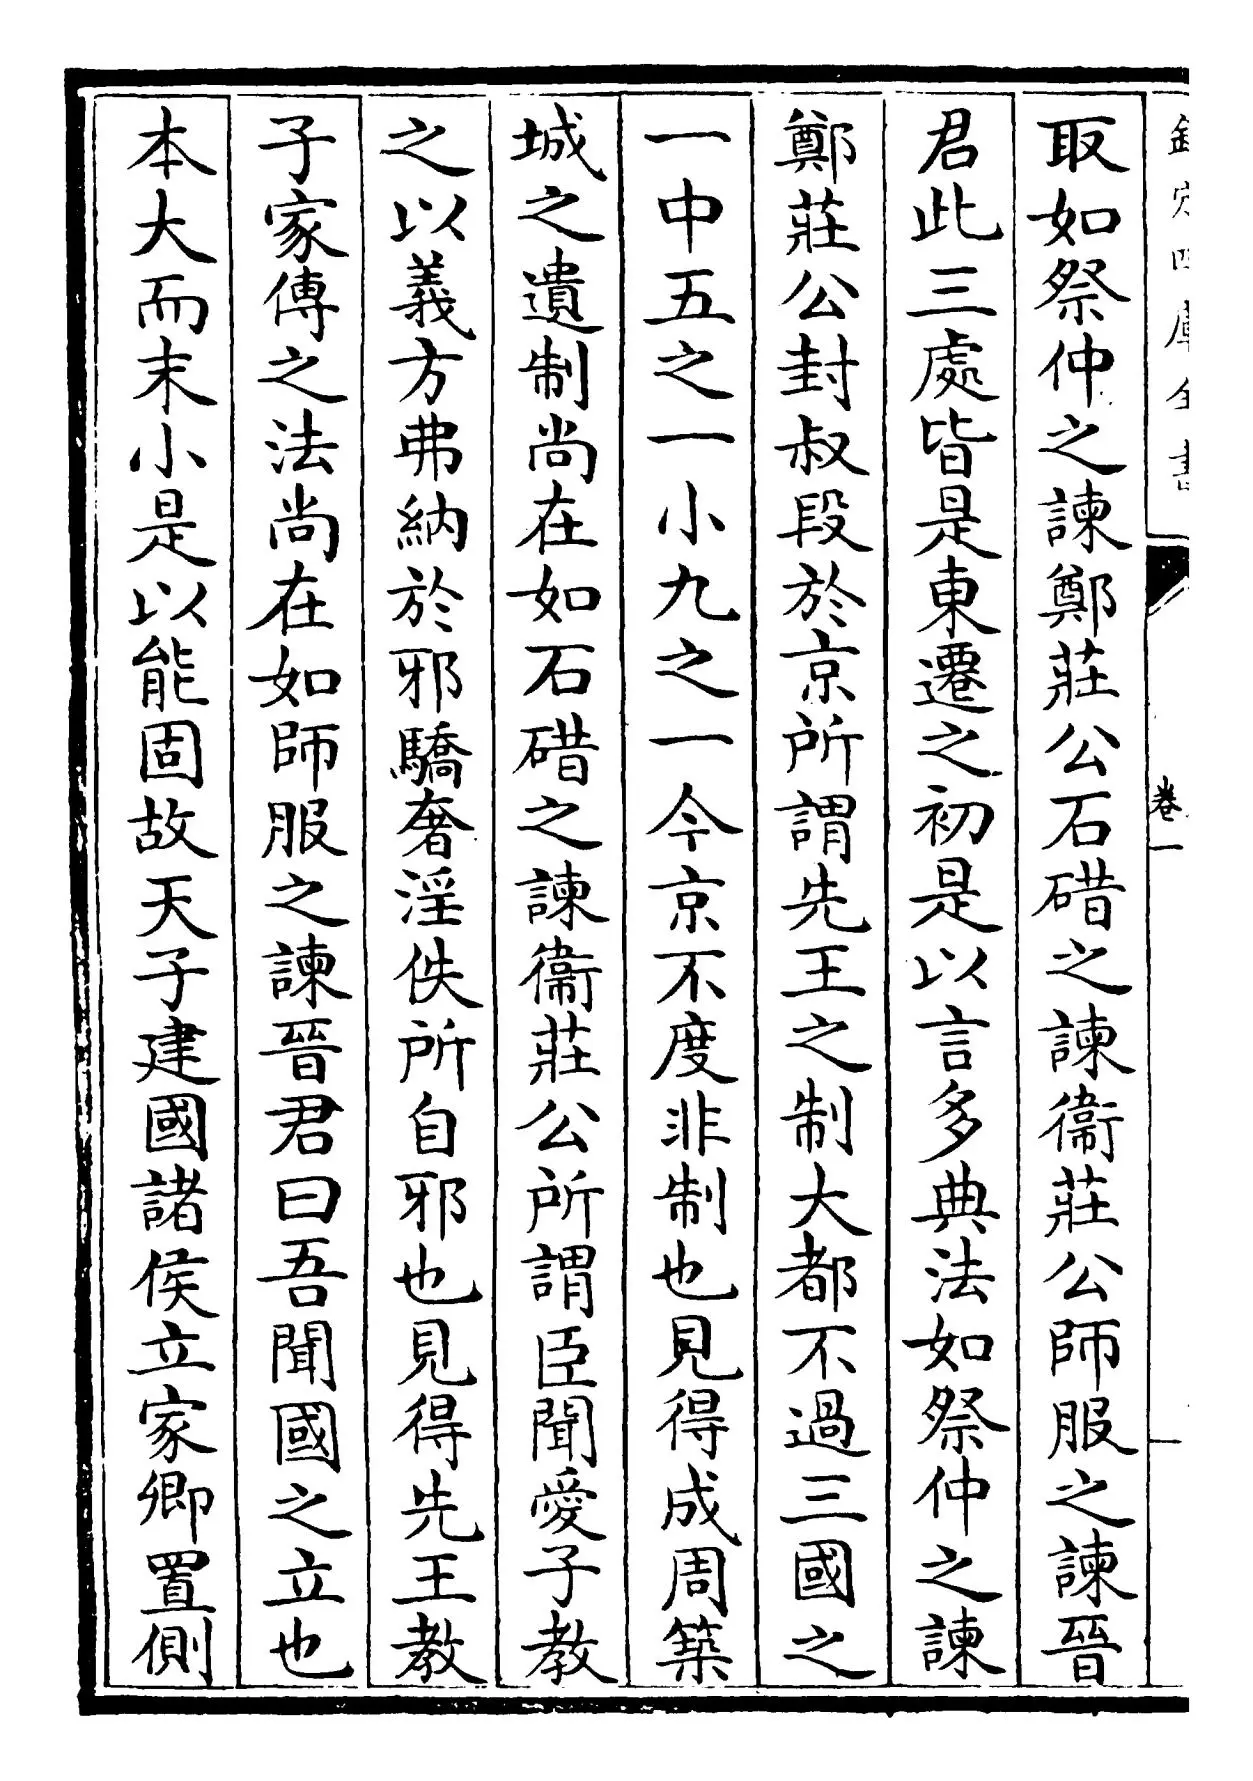 欽定四庫全書
卷一
取如祭仲之諫鄭莊公石碏之諫衞莊公師服之諫晉
君此三處皆是東遷之初是以言多典法如祭仲之諫
鄭莊公封叔段於京所謂先王之制大都不過三國之
一中五之一小九之一今京不度非制也見得成周築
城之遺制尚在如石碏之諫衞莊公所謂臣聞愛子教
之以義方弗納於邪驕奢淫佚所自邪也見得先王教
子家傳之法尚在如師服之諫晉君曰吾聞國之立也
本大而末小是以能固故天子建國諸侯立家卿置側